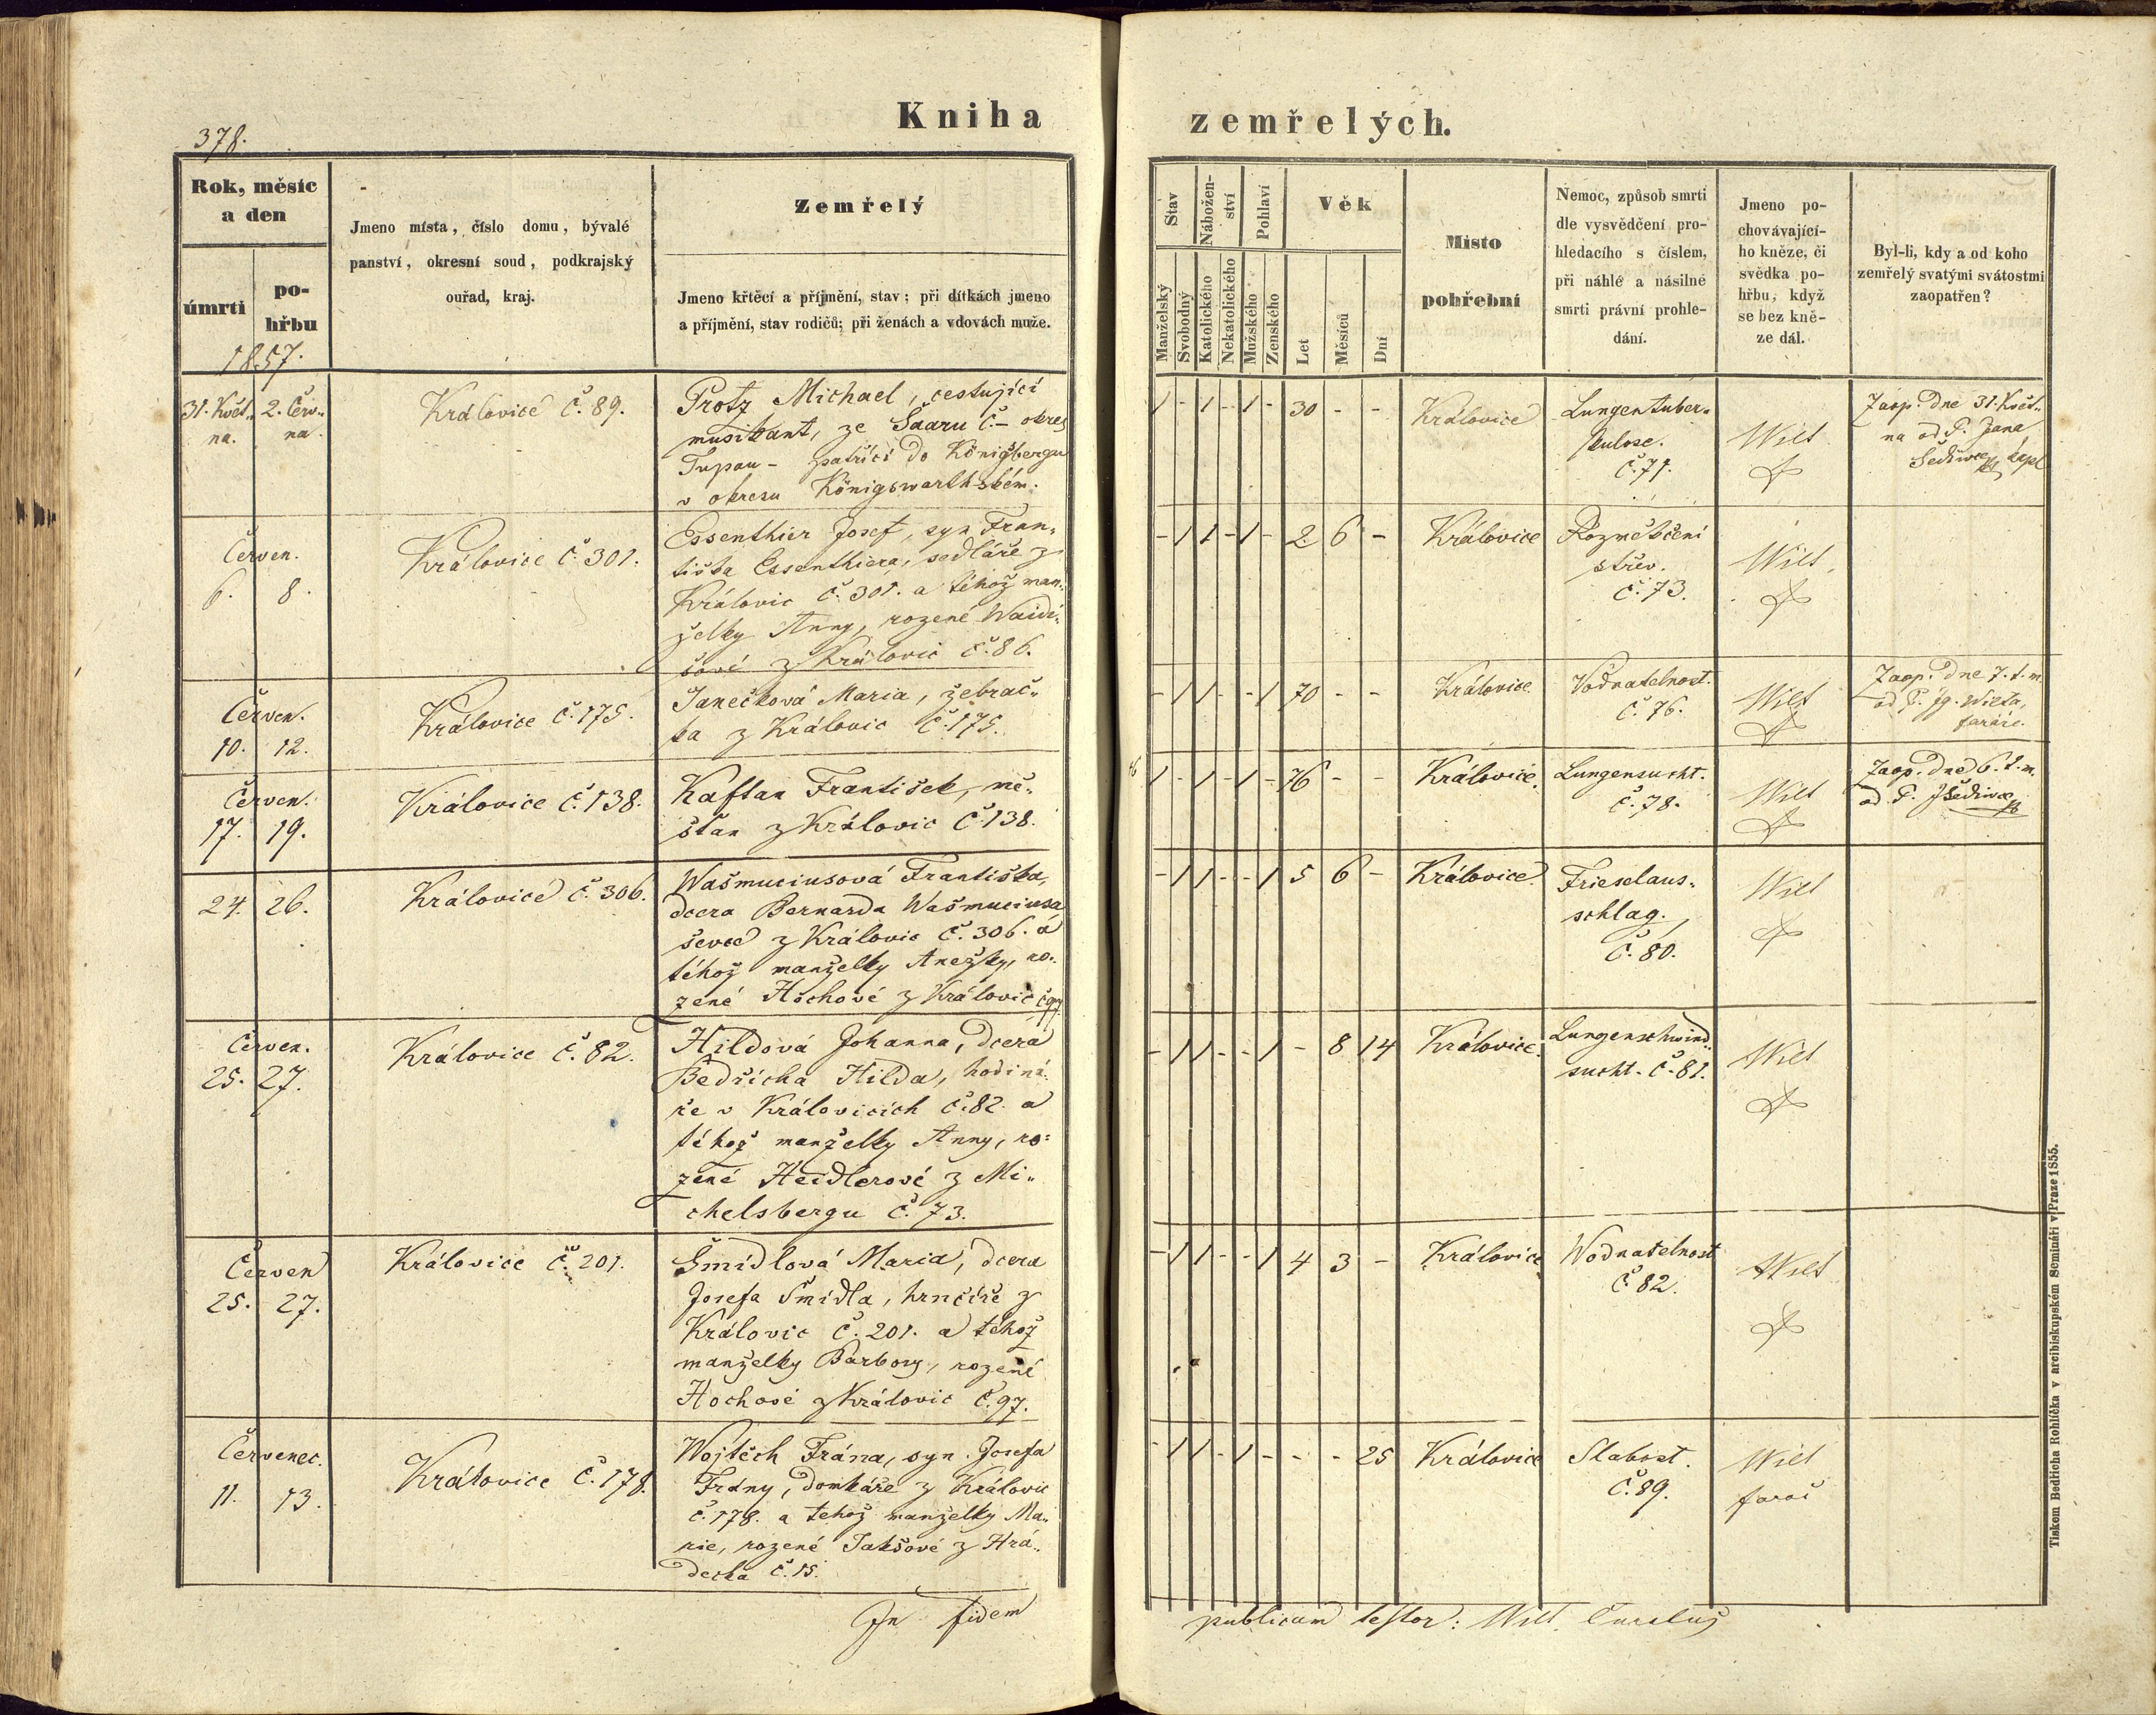 378.
Kniha zemřelých.
Rok, měsíc a den
úmrtí
pohřbu
1857.
Jmeno místa, číslo domu, bývalé
panství, okresní soud, podkrajský
ouřad, kraj.
Zemřelý
Jmeno křtěcí a příjmění, stav; při dítkách jmeno
a příjmění, stav rodičů; při ženách a vdovách muže.
Stav
Manželský
Svobodný
Náboženství
Katolického
Nekatolického
Pohlaví
Mužského
Ženského
Věk
Let
Měsíců
Dní
Místo
pohřební
Nemoc, způsob smrti
dle vysvědčení pro-
hledacího s číslem,
při náhlé a násilné
smrti právní prohle-
dání.
Jmeno po-
chovávající-
ho kněze, či
svědka po-
hřbu, když
se bez kně-
ze dál.
Byl-li, kdy a od koho
zemřelý svatými svátostmi
zaopatřen?
31. Květ- 2. Červ-
na. na.
Králović č. 89.
Protz Michael, cestující
musikant, ze Saaru č. – okres
Tupau – patřící do Königsbergu
v okresu Königswarthském.
1 - 1 - 1 - 30 - -
Královice
Lungentuber-
kulose.
č. 71.
Wilt
Zaop. dne 31. Květ-
na od P. Jana
Šediwce, kapl
Červen.
6. 8.
Královice č. 301.
Essenthier Josef, syn Fran-
tiška Essenthiera, sedláře z
Královic č. 301. a téhož man-
želky Anny, rozené Waidi-
šové z Královic č. 86.
- 1 1 - 1 - 2 6 -
Královice
Rozměkčení
střev.
č. 73.
Wilt
Červen.
10. 12.
Královice č. 175.
Janečková Maria, žebrač-
ka z Královic č. 175.
- 1 1 - - 1 70 - -
Královice
Vodnatelnost.
č. 76.
Wilt
Zaop. dne 7. t. m.
od P. Ig. Wilta,
faráře.
Červen.
17. 19.
Královice č. 138.
Kaftan František, mě-
šťan z Královic č. 138.
1 - 1 - 1 - 76 - -
Královice.
Lungensucht.
č. 78.
Wilt
Zaop. dne 6. t. m.
od P. J Šediwce
24. 26.
Královice č. 306.
Wašmuciusová Františka,
dcera Bernarda Wašmuciusa
ševce z Královic č. 306. a
téhož manželky Anežky, ro-
zené Hochové z Královic č. 97
- 1 1 - - 1 5 6 -
Královice.
Frieselaus-
schlag.
č. 80.
Wilt
Červen.
25. 27.
Královice č. 82.
Hildová Johanna, dcera
Bedřicha Hilda, hodiná-
ře v Královicích č. 82. a
téhož manželky Anny, ro-
zené Heidlerové z Mi-
chelsbergu č. 73.
- 1 1 - - 1 - 8 14
Královice.
Lungenschwind-
sucht. č. 81.
Wilt
Červen
25. 27.
Královice č. 201.
Šmídlová Maria, dcera
Josefa Šmídla, hrnčíře z
Královic č. 201. a téhož
manželky Barbory, rozené
Hochové z Královic č. 97.
- 1 1 - - 1 4 3 -
Královice
Wodnatelnost
č. 82.
Wilt
Červenec.
11. 13.
Královice č. 178.
Wojtěch Frána, syn Josefa
Frány, domkáře z Královic
č. 178. a tehož manželky Ma-
rie, rozené Jakšové z Hrá-
decka č. 15.
- 1 1 - 1 - - - 25
Královice
Slabost.
č. 89.
Wilt
farář
In fidem
publicam testor: Wilt, Curatus
Tiskem Bedřicha Rohlíčka v arcibiskupském Semináři v Praze 1855.